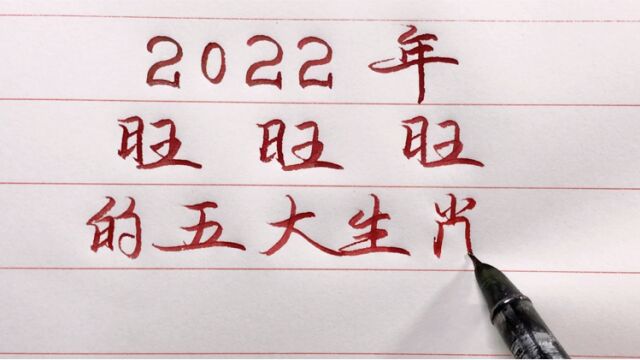 2022年
旺旺旺
的五大生肖